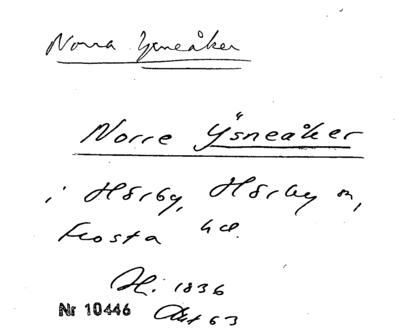 Norra Ysneåker
Norre Ÿsneåker
i Hörby, Hörby sn,
Frosta hd.
H. 1836
Nr 10446 Akt 63